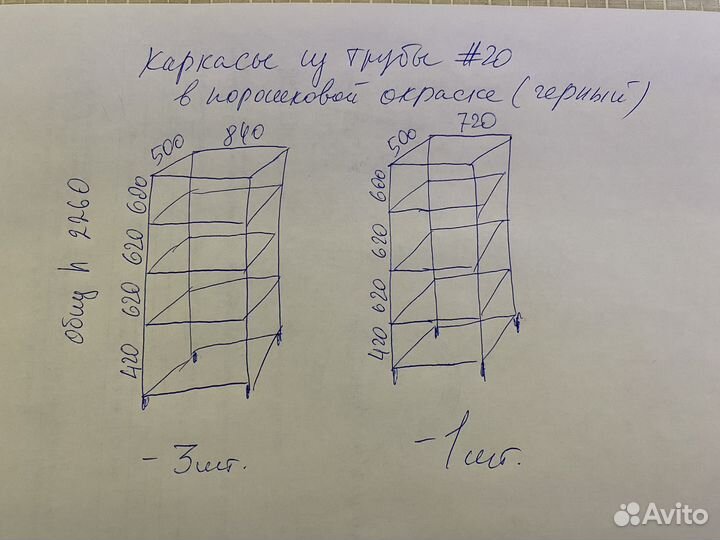 Каркасы из трубы #20
в порошковой окраске (черный)
500 840
600
620
620
420
общ h 2260
- 3 шт.
500 720
600
620
620
420
- 1 шт.
Avito